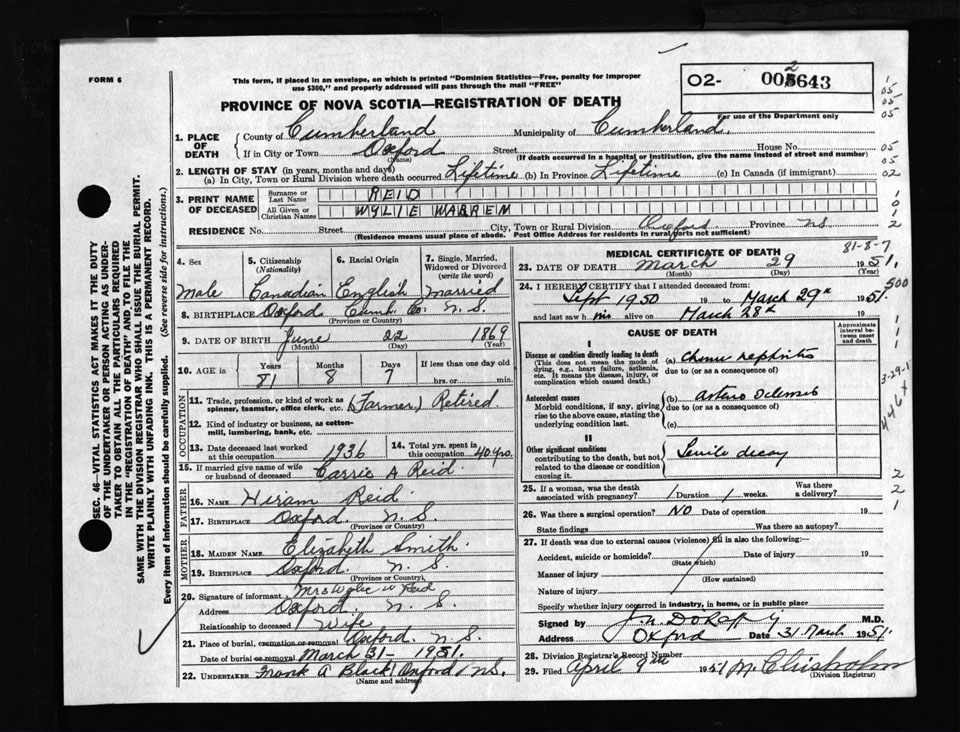 FORM 6
This form, if placed in an envelope, on which is printed "Dominion Statistics—Free, penalty for improper
use $300," and properly addressed will pass through the mail "FREE"
PROVINCE OF NOVA SCOTIA—REGISTRATION OF DEATH
O2- 002643
For use of the Department only
1. PLACE OF DEATH
County of Cumberland Municipality of Cumberland.
If in City or Town Oxford Street House No.
(Name) (If death occurred in a hospital or institution, give the name instead of street and number)
2. LENGTH OF STAY (in years, months and days)
(a) In City, Town or Rural Division where death occurred Lifetime (b) In Province Lifetime (c) In Canada (if immigrant)
3. PRINT NAME OF DECEASED
Surname or Last Name REID
All Given or Christian Names WYLIE WARREN
RESIDENCE No. Street City, Town or Rural Division Oxford Province N.S.
(Residence means usual place of abode. Post Office Address for residents in rural parts not sufficient)
4. Sex Male
5. Citizenship (Nationality) Canadian
6. Racial Origin English
7. Single, Married, Widowed or Divorced (write the word) Married
8. BIRTHPLACE Oxford Cumb. Co. N.S.
(Province or Country)
9. DATE OF BIRTH June 22 1869
(Month) (Day) (Year)
10. AGE is Years 81 Months 8 Days 7 If less than one day old hrs. or min.
OCCUPATION
11. Trade, profession, or kind of work as spinner, teamster, office clerk, etc. (Farmer) Retired.
12. Kind of industry or business, as cotton-mill, lumbering, bank, etc.
13. Date deceased last worked at this occupation 1936
14. Total yrs. spent in this occupation 40 yrs.
15. If married give name of wife or husband of deceased Carrie A Reid.
FATHER
16. NAME Hiram Reid.
17. BIRTHPLACE Oxford. N.S.
(Province or Country)
MOTHER
18. MAIDEN NAME Elizabeth Smith.
19. BIRTHPLACE Oxford. N.S.
(Province or Country)
20. Signature of informant Mrs Wylie W Reid
Address Oxford. N.S.
Relationship to deceased Wife
21. Place of burial, cremation or removal Oxford. N.S.
Date of burial or removal March 31- 1951.
22. UNDERTAKER Frank A Black Oxford N.S.
(Name and address)
MEDICAL CERTIFICATE OF DEATH
81-8-7
23. DATE OF DEATH March 29 1951.
(Month) (Day) (Year)
24. I HEREBY CERTIFY that I attended deceased from:
Sept 1950 19 to March 29th 1951.
and last saw him alive on March 28th 19
CAUSE OF DEATH
Approximate interval between onset and death
I
Disease or condition directly leading to death
(This does not mean the mode of dying, e.g., heart failure, asthenia, etc. It means the disease, injury, or complication which caused death.)
(a) Chronic nephritis
due to (or as a consequence of)
Antecedent causes
Morbid conditions, if any, giving rise to the above cause, stating the underlying condition last.
(b) Arterio Sclerosis
due to (or as a consequence of)
(c)
II
Other significant conditions
contributing to the death, but not related to the disease or condition causing it.
Senile decay
25. If a woman, was the death associated with pregnancy? Duration weeks. Was there a delivery?
26. Was there a surgical operation? NO Date of operation 19
State findings Was there an autopsy?
27. If death was due to external causes (violence) fill in also the following:—
Accident, suicide or homicide? Date of injury 19
(State which)
Manner of injury
(How sustained)
Nature of injury
Specify whether injury occurred in industry, in home, or in public place
Signed by M.D.
Address Oxford Date 31 March 1951.
28. Division Registrar's Record Number
29. Filed April 9th 1951 M. Chisholm
(Division Registrar)
SEC. 46—VITAL STATISTICS ACT MAKES IT THE DUTY
OF THE UNDERTAKER OR PERSON ACTING AS UNDER-
TAKER TO OBTAIN ALL THE PARTICULARS REQUIRED
IN THE "REGISTRATION OF DEATH" AND TO FILE THE
SAME WITH THE DIVISION REGISTRAR WHO SHALL ISSUE THE BURIAL PERMIT.
WRITE PLAINLY WITH UNFADING INK. THIS IS A PERMANENT RECORD.
Every item of information should be carefully supplied. (See reverse side for instructions.)
1
05
05
05
05
02
1
0
1
2
500
1
1
1
3-29-1
446 X
2
2
1